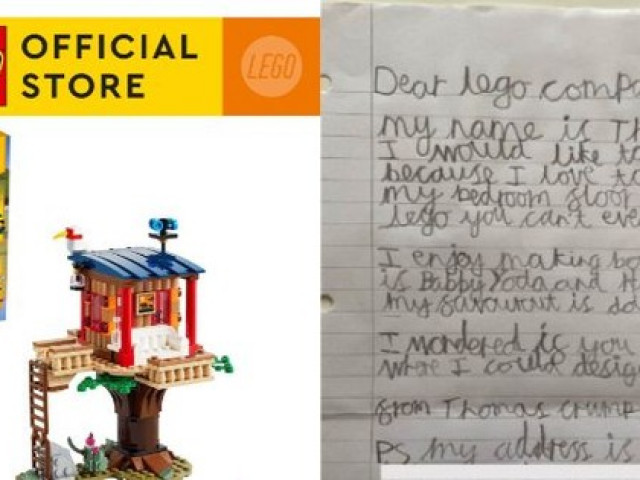 OFFICIAL
STORE
LEGO
Dear lego compa
my name is Th
I would like to
because I love to
my bedroom floor
lego you can't eve
I enjoy making bo
is Babby Yoda and H
my favourout is
I wondered if you
where I could desig
from Thomas crump
PS my address is